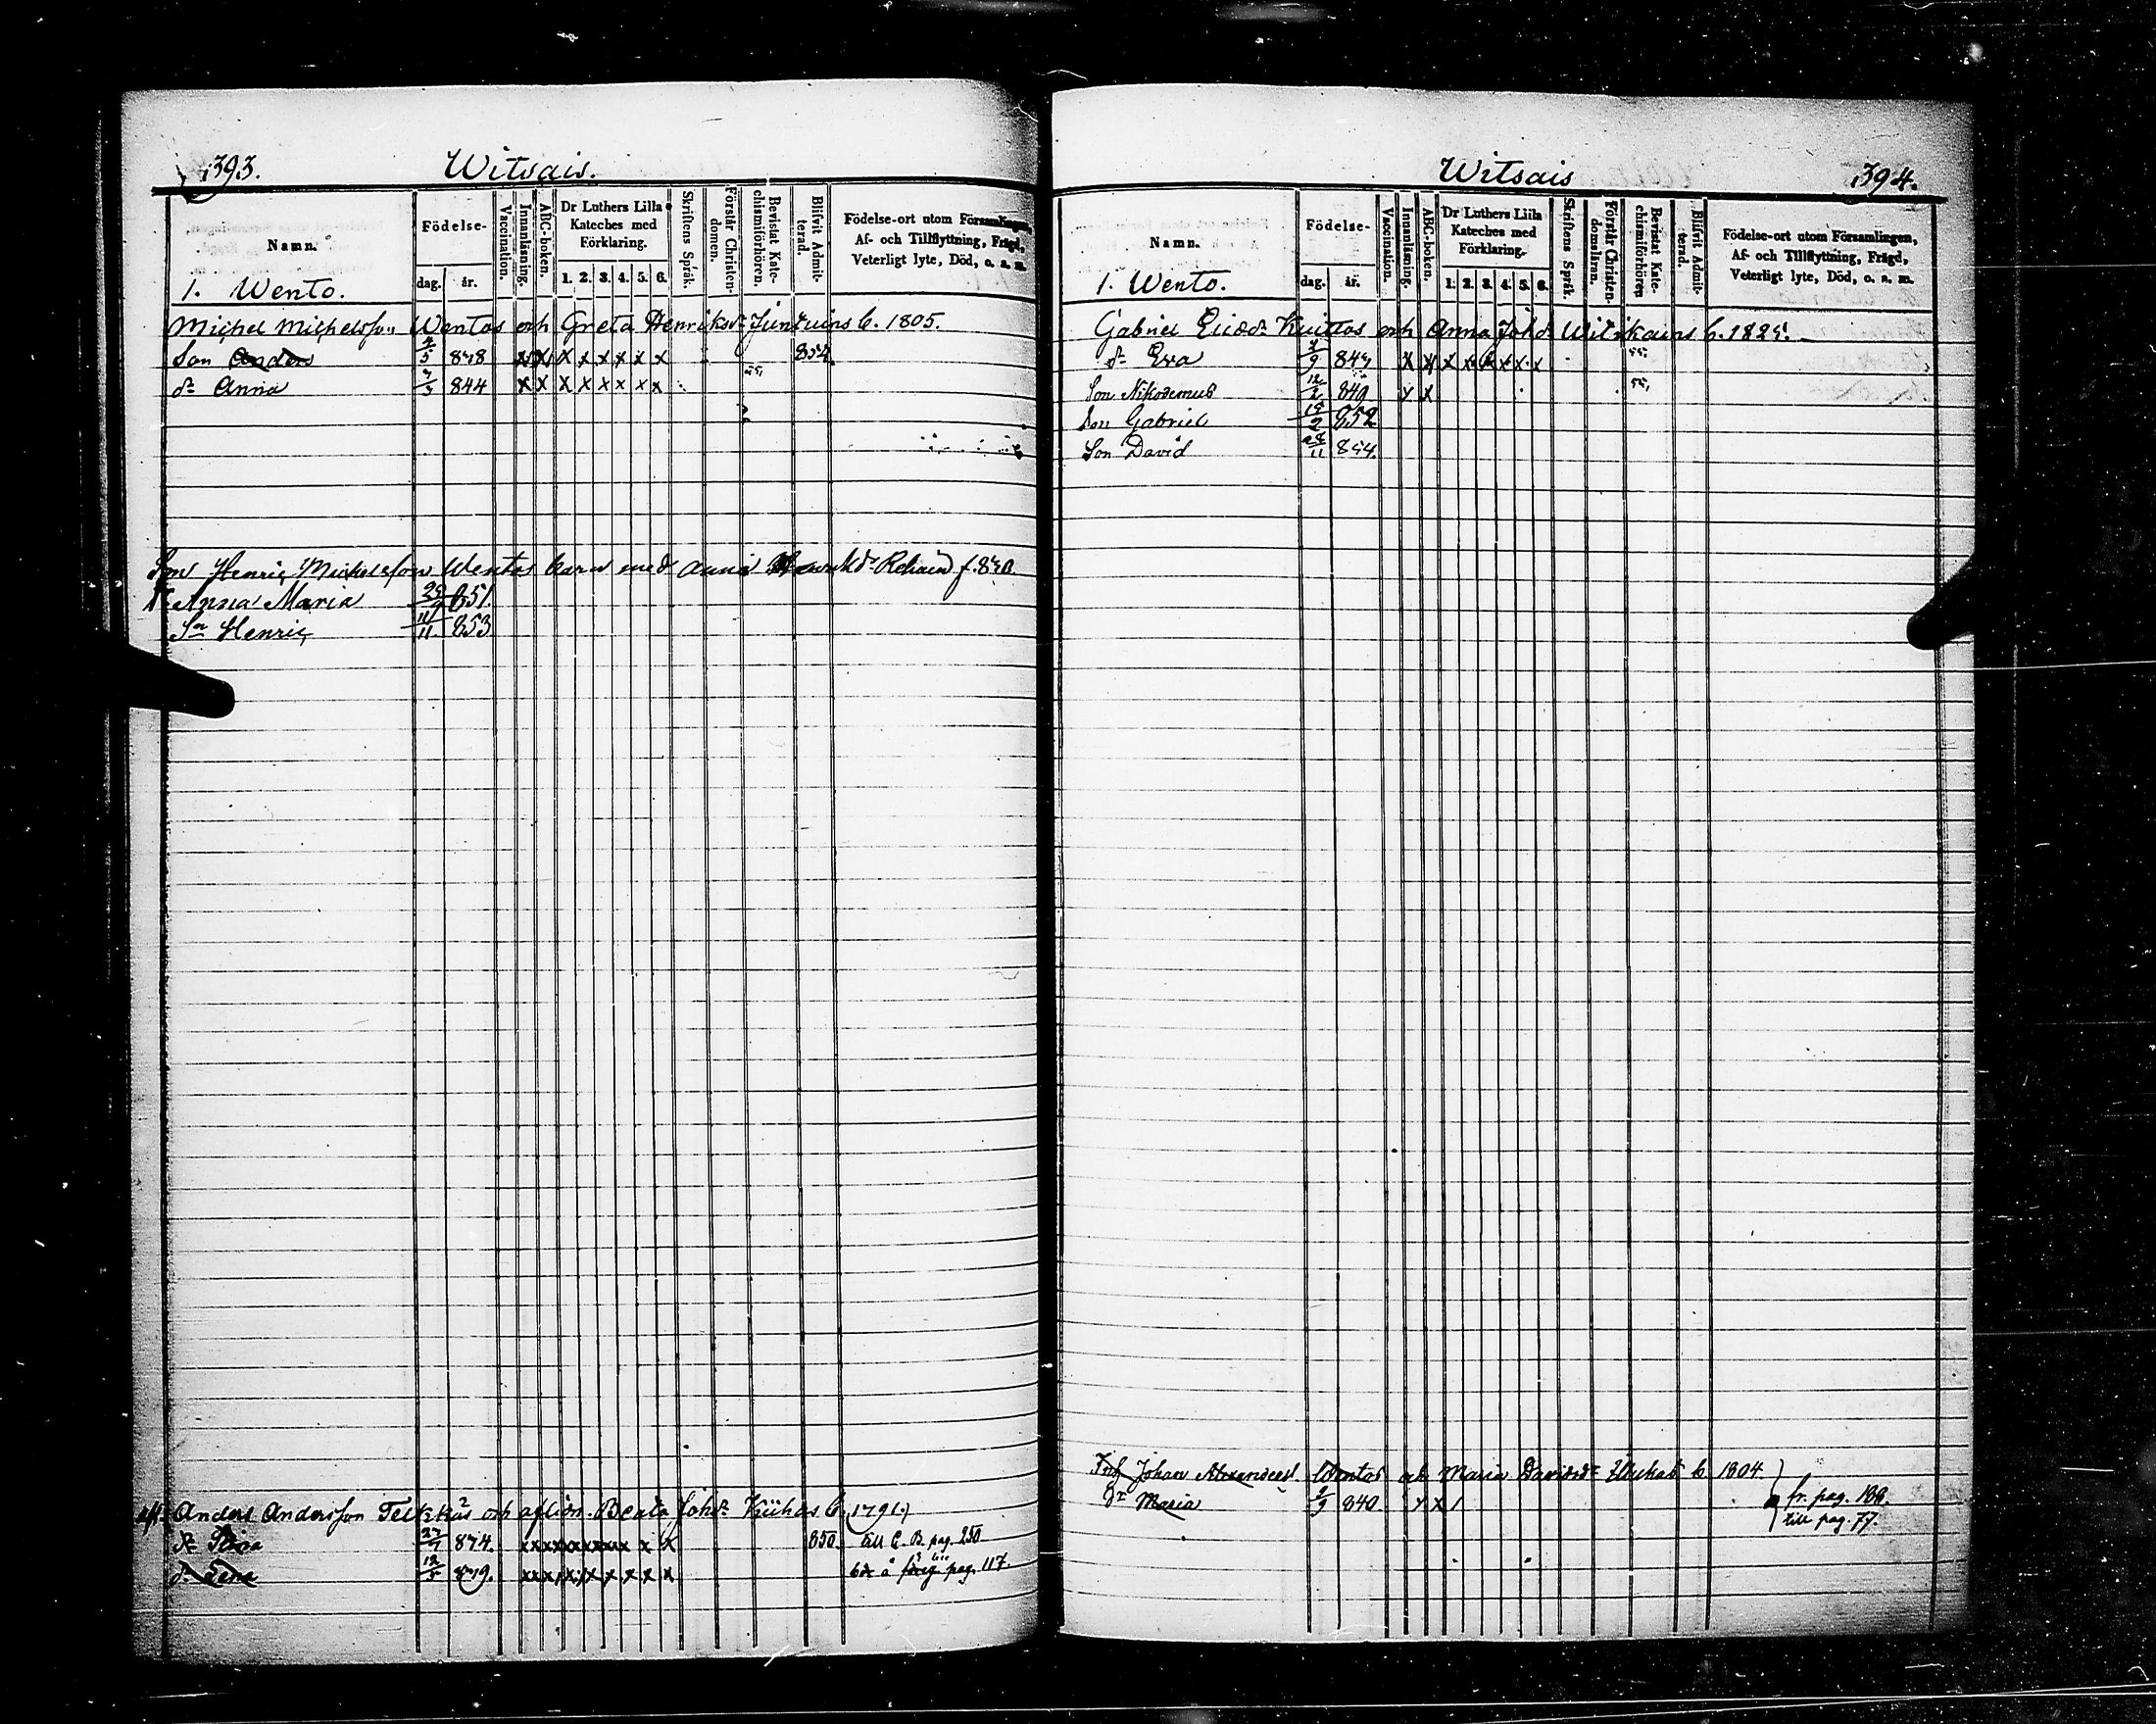 393. Witsais.
Namn. Födelse- dag. år. Vaccination. Innanläsning. ABC-boken. Dr Luthers Lilla Kateches med Förklaring. 1. 2. 3. 4. 5. 6. Skriftens Språk. Förstår Christen-domen. Bevistat Kate-chismiförhören. Blifvit Admit-terad. Födelse-ort utom Församlingen, Af- och Tillflyttning, Frägd, Veterligt lyte, Död, o. s. m.
1. Wento.
Michel Michelsson Wentos och Greta Henriksdr b. 1805.
Son Anders 4/5 838 x x x x x x x x 854
dr Anna 7/5 844 x x x x x x x x 55,
Son Henric Mickelsson Wentos barn med Anna f. 830
Dr Anna Maria 25/9 851.
Sn Henric 11/11 853
Anders Andersson och aflidn. Beata Johdr Kiihas b. (1791.)
Dr Stina 27/7 834. x x x x x x x x x x 850 till C. B. pag. 250
dr Lena 12/5 839. x x x x x x x x x pag. 117.
Witsais 394.
Namn. Födelse- dag. år. Vaccination. Innanläsning. ABC-boken. Dr Luthers Lilla Kateches med Förklaring. 1. 2. 3. 4. 5. 6. Skriftens Språk. Förstår Christen-domsläran. Bevistat Kate-chismiförhören Blifvit Admit-terad. Födelse-ort utom Församlingen, Af- och Tillflyttning, Frägd, Veterligt lyte, Död, o. s. m.
1. Wento.
Gabriel Kuittos och Anna Johdr b. 1825.
dr Eva 847 x x x x x x x x 55,
Son Nikodemus 12/2 849 x x 55,
Son Gabriel 15/2 852
Son David 28/11 854.
Johan Alexanders. Wentos och Maria Davidsdr b. 1804
Dr Maria 9/9 840 x x 1 fr. pag. 130.
till pag. 77.